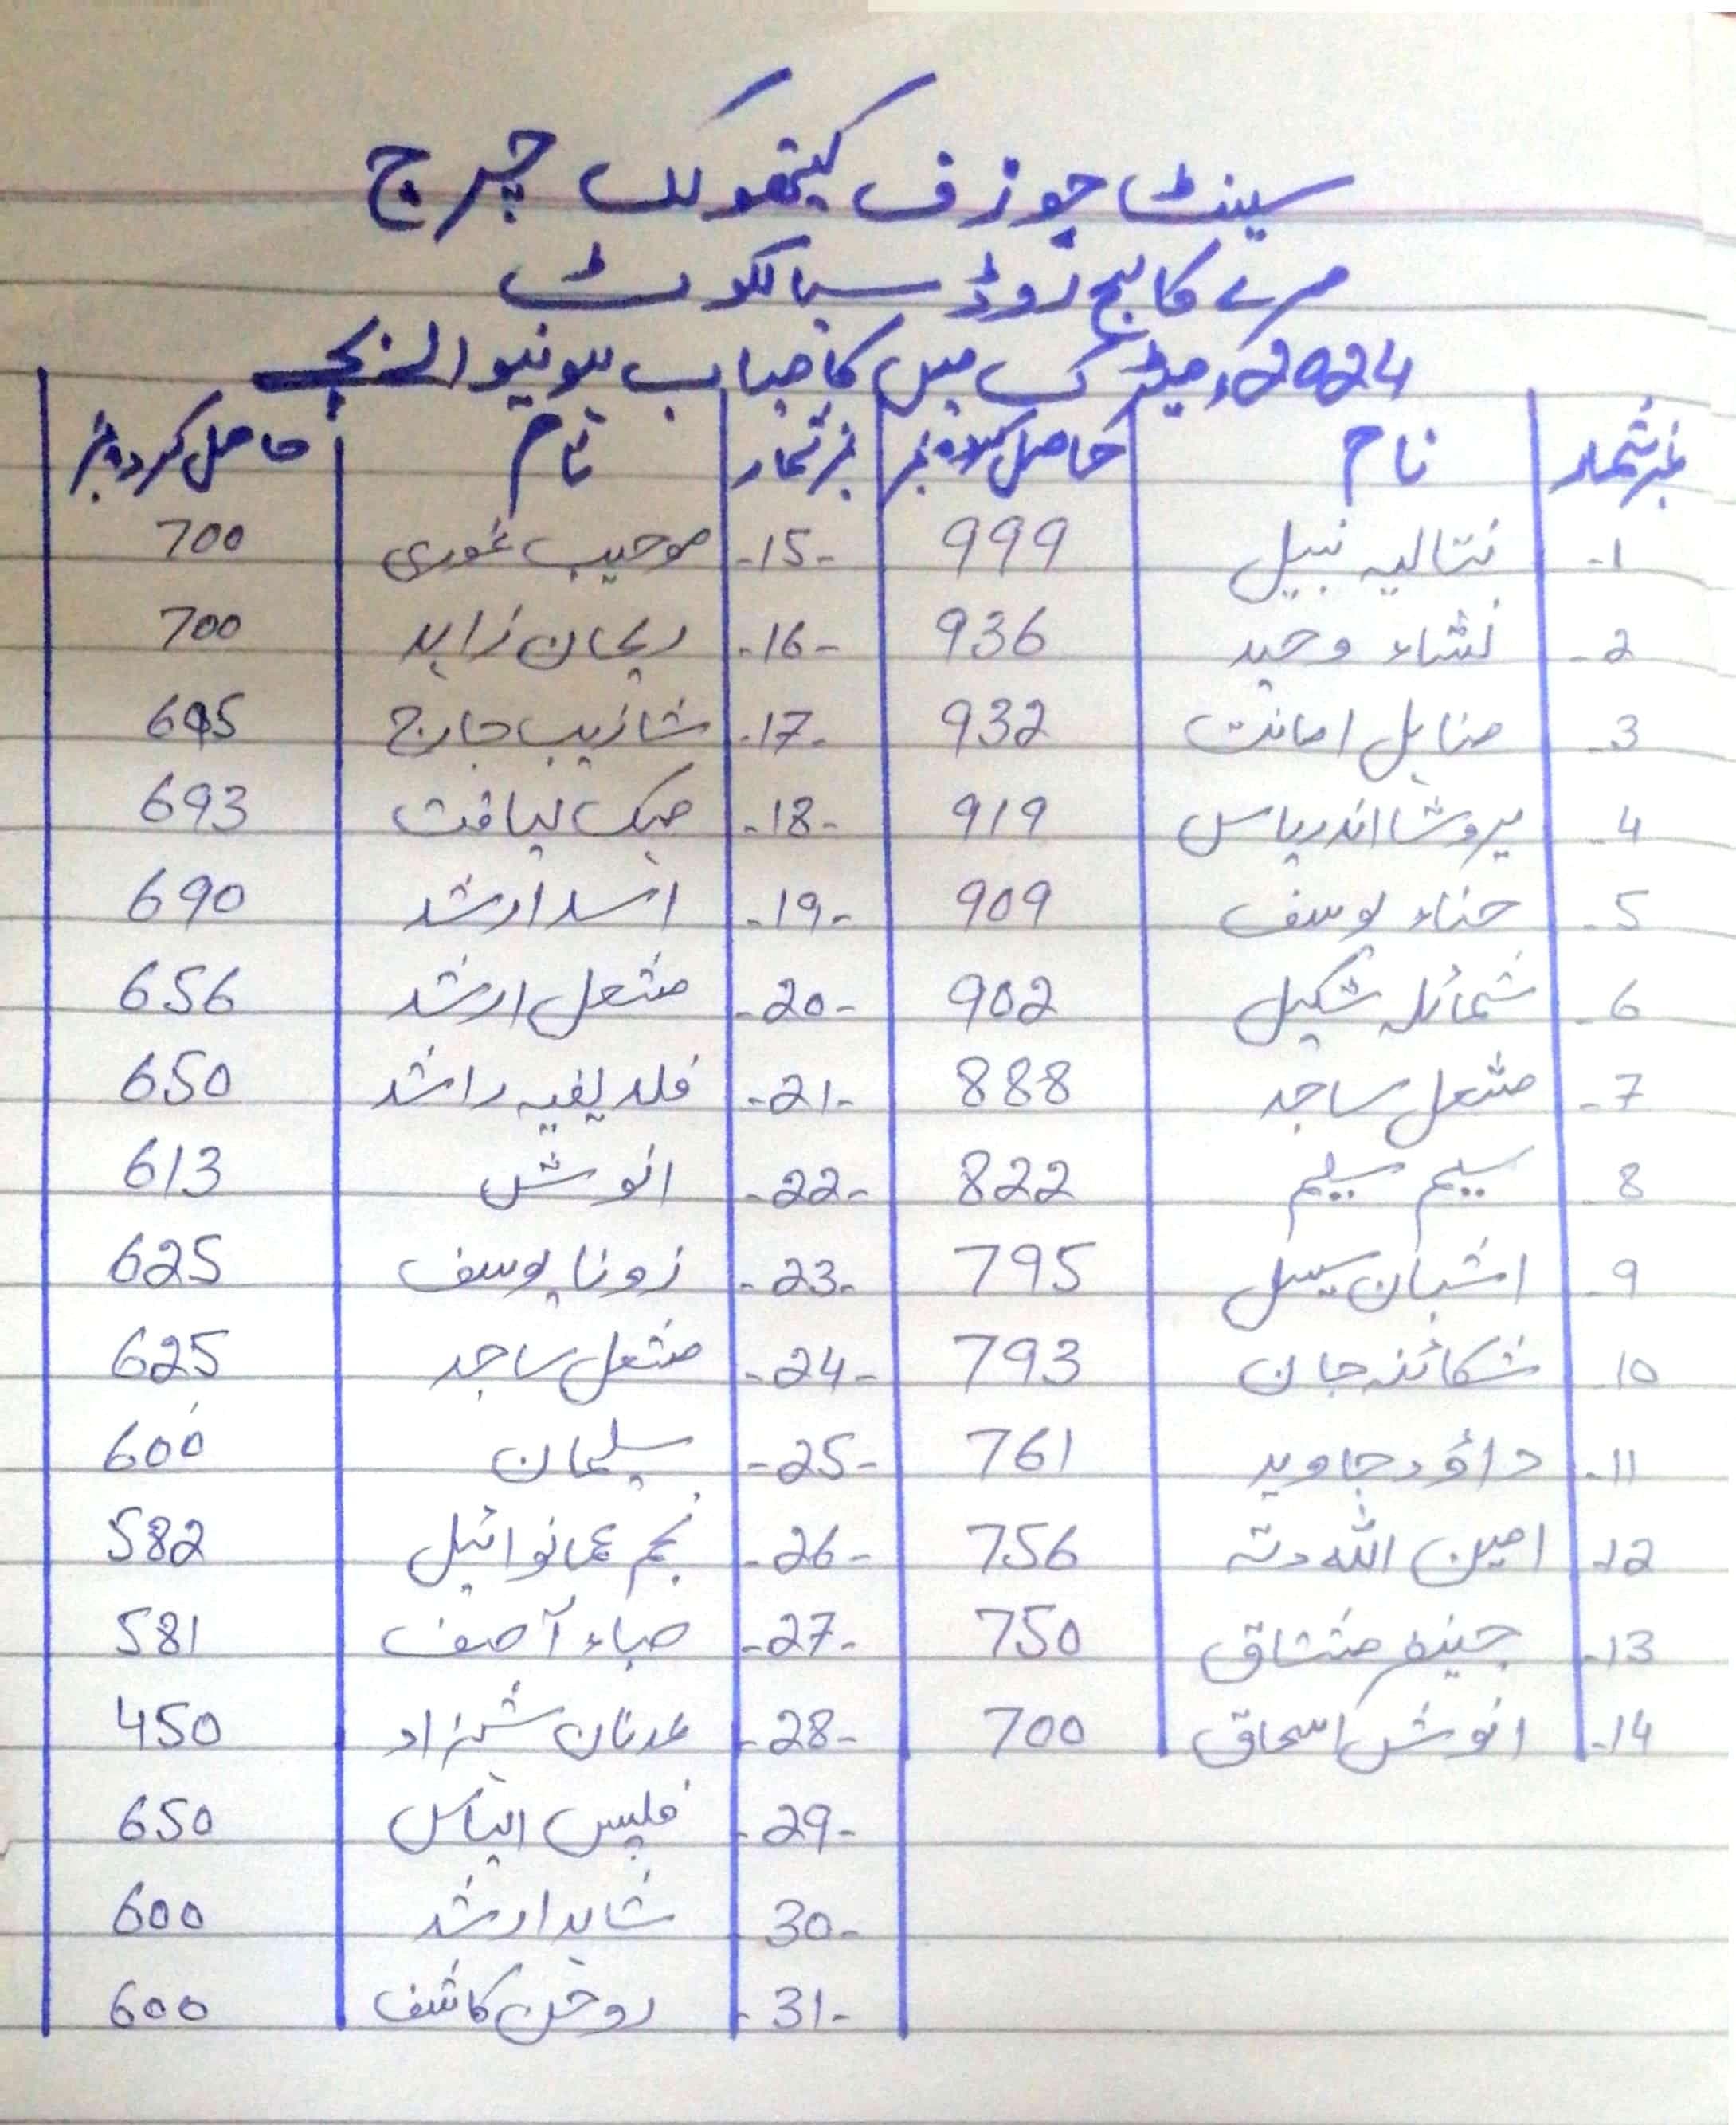 سینٹ جوزف کیتھولک چرچ
مرے کالج روڈ سیالکوٹ
2024ء میٹرک میں کامیاب ہونیوالے بچے
نمبر شمار نام حاصل کردہ نمبر نمبر شمار نام حاصل کردہ نمبر
1- نتالیہ نبیل 999 -15- موحیب غوری 700
2- نشاء وحید 936 -16- ریحان زاہد 700
3- مناہل امانت 932 -17- شازیب جارج 695
4- یروشا اندریاس 919 -18- مہک لیاقت 693
5- حناء یوسف 909 -19- اسد ارشد 690
6- شمائلہ شکیل 902 -20- مشعل ارشد 656
7- مشعل ساجد 888 -21- فلدیفیہ راشد 650
8- سلیم 822 -22- انوش 613
9- اشبان سیسل 795 -23- زونا یوسف 625
10- شکائنہ جان 793 -24- مشعل ساجد 625
11- داؤد جاوید 761 -25- سلیمان 600
12- امین اللہ دتہ 756 -26- نجم عمانوائیل 582
13- جینفر مشتاق 750 -27- صباء آصف 581
14- انوش اسحاق 700 -28- عدنان شہزاد 450
-29- فلپس الیاس 650
30- شاہد ارشد 600
-31- روحن کاشف 600